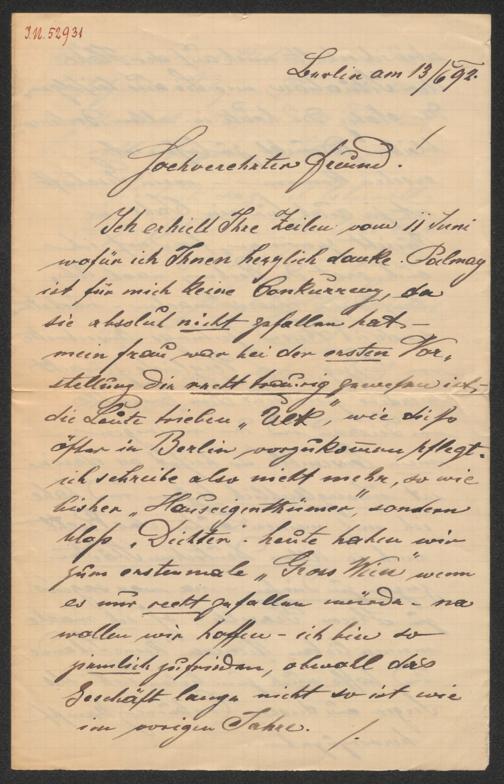 I.N. 52931
Berlin am 13/6 92.
Hochverehrter Freund!
Ich erhielt Ihre Zeilen vom 11 Juni
wofür ich Ihnen herzlich danke. Palmay
ist für mich keine Conkurrenz, da
sie absolut nicht gefallen hat –
mein Frau war bei der ersten Vor-
stellung die recht traurig gewesen ist,
die Leute trieben „Ulk", wie dieß
öfter in Berlin vorzukommen pflegt.
ich schreibe also nicht mehr, so wie
bisher „Hauseigenthümer", sondern
bloß „Dichter". heute haben wir
zum erstenmale „Gross Wien" wenn
es nur recht gefallen würde – na
wollen wir hoffen – ich bin so
ziemlich zufrieden, obwohl das
Geschäft lange nicht so ist wie
im vorigen Jahre. /.